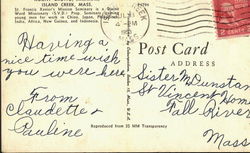 ISLAND CREEK, MASS.
St. Francis Xavier's Mission Seminary is a Divine
Word Missionary (S.V.D.) Prep. Seminary training
young men for work in China, Japan, Philippines,
India, Africa, New Guinea, and Indonesia.
Having a
nice time wish
you were here.
From
Claudette &
Pauline
Post Card
ADDRESS
Sister M. Dunstan
St Vincent Home
Fall River
Mass
Reproduced from 35 MM Transparency
2 CENTS